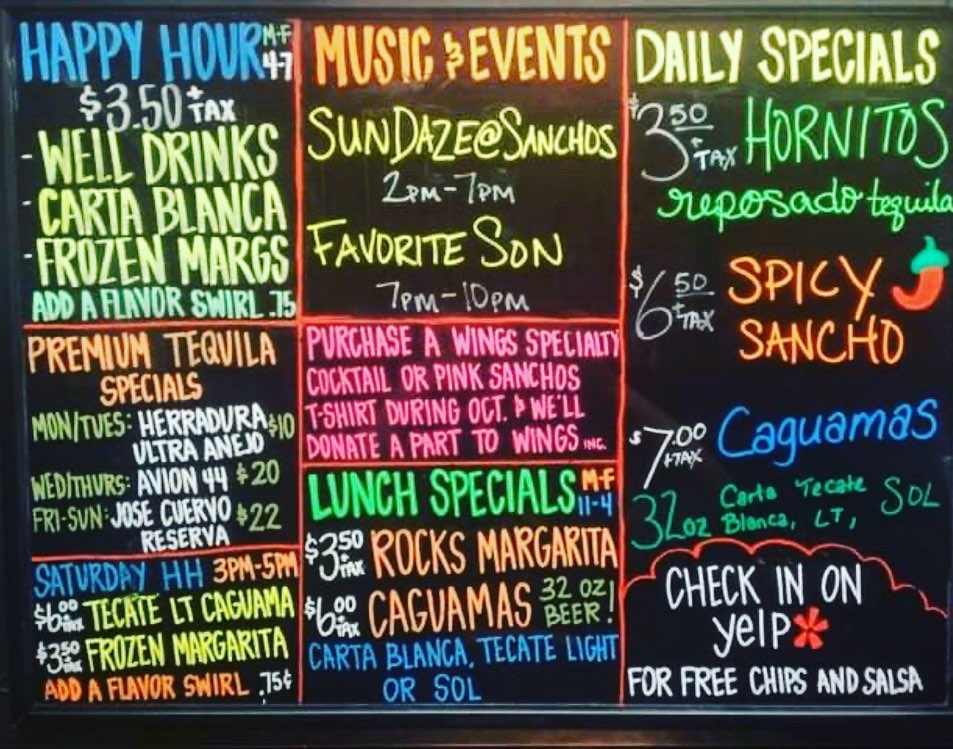 HAPPY HOUR M-F 4-7
$3.50 + TAX
- WELL DRINKS
- CARTA BLANCA
- FROZEN MARGS
ADD A FLAVOR SWIRL .75
PREMIUM TEQUILA
SPECIALS
MON/TUES: HERRADURA $10
ULTRA ANEJO
WED/THURS: AVION 44 $20
FRI-SUN: JOSE CUERVO $22
RESERVA
SATURDAY HH 3PM-5PM
$6.00 + TAX TECATE LT CAGUAMA
$3.50 + TAX FROZEN MARGARITA
ADD A FLAVOR SWIRL .75¢
MUSIC & EVENTS
SUNDAZE@SANCHOS
2PM-7PM
FAVORITE SON
7PM-10PM
PURCHASE A WINGS SPECIALTY
COCKTAIL OR PINK SANCHOS
T-SHIRT DURING OCT. & WE'LL
DONATE A PART TO WINGS INC.
LUNCH SPECIALS M-F 11-4
$3.50 + TAX ROCKS MARGARITA
$6.00 + TAX CAGUAMAS 32 OZ BEER!
CARTA BLANCA, TECATE LIGHT
OR SOL
DAILY SPECIALS
$3.50 + TAX HORNITOS
reposado tequila
$6.50 + TAX SPICY
SANCHO
$7.00 + TAX Caguamas
32oz Carta Blanca, Tecate LT, SOL
CHECK IN ON
yelp
FOR FREE CHIPS AND SALSA